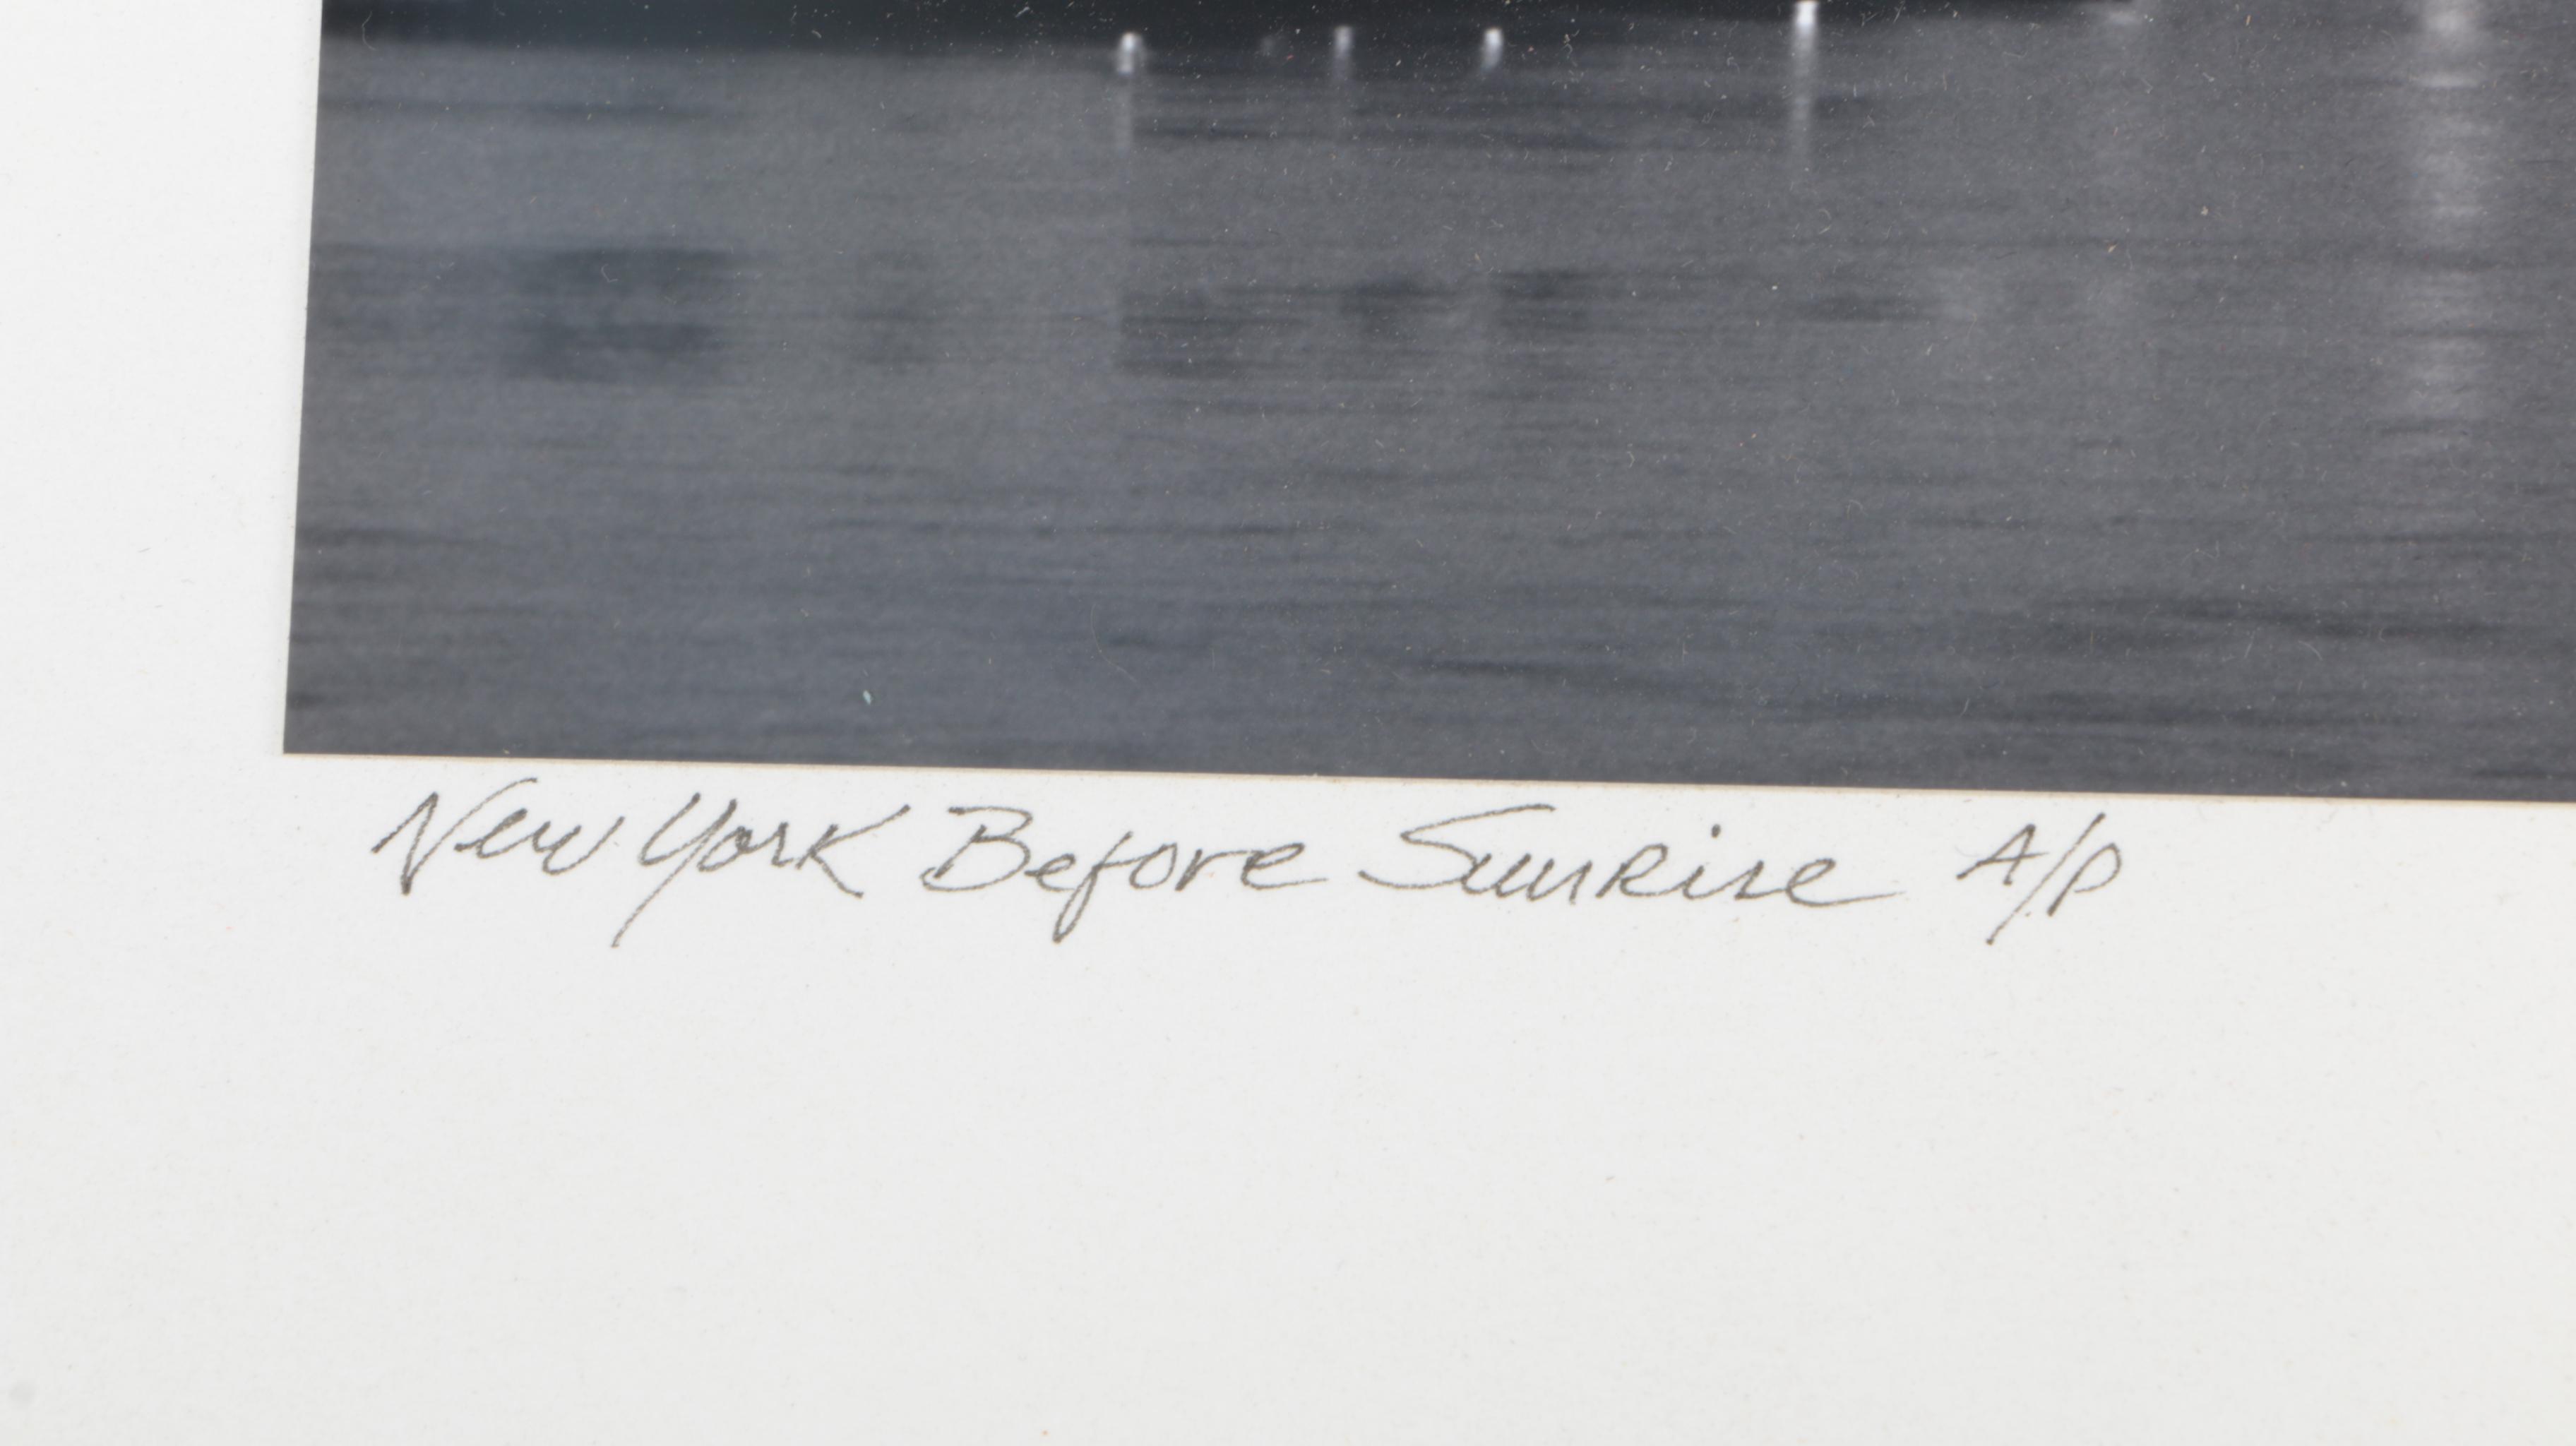 New York Before Sunrise A/P